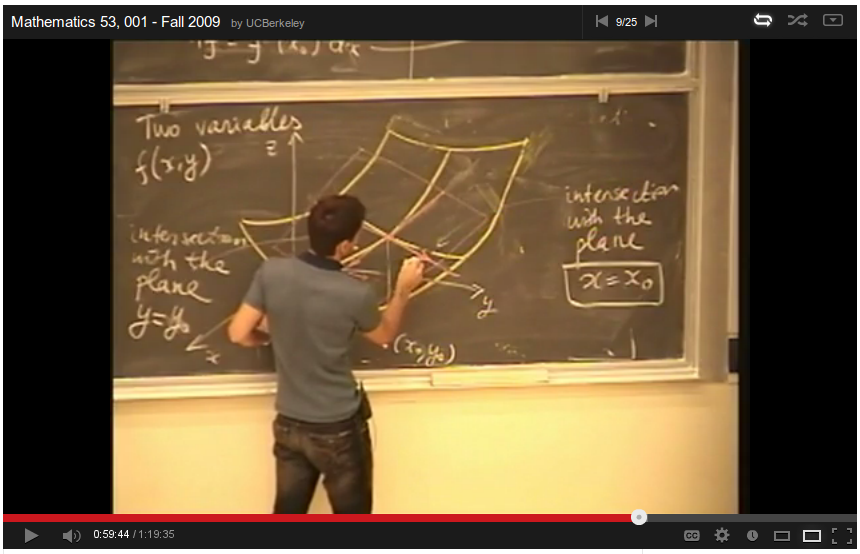 Mathematics 53, 001 - Fall 2009 by UCBerkeley
9/25
Two variables
f(x,y)
z
intersection
with the
plane
y=y₀
x
y
(x₀,y₀)
intersection
with the
plane
x=x₀
0:59:44 / 1:19:35
CC